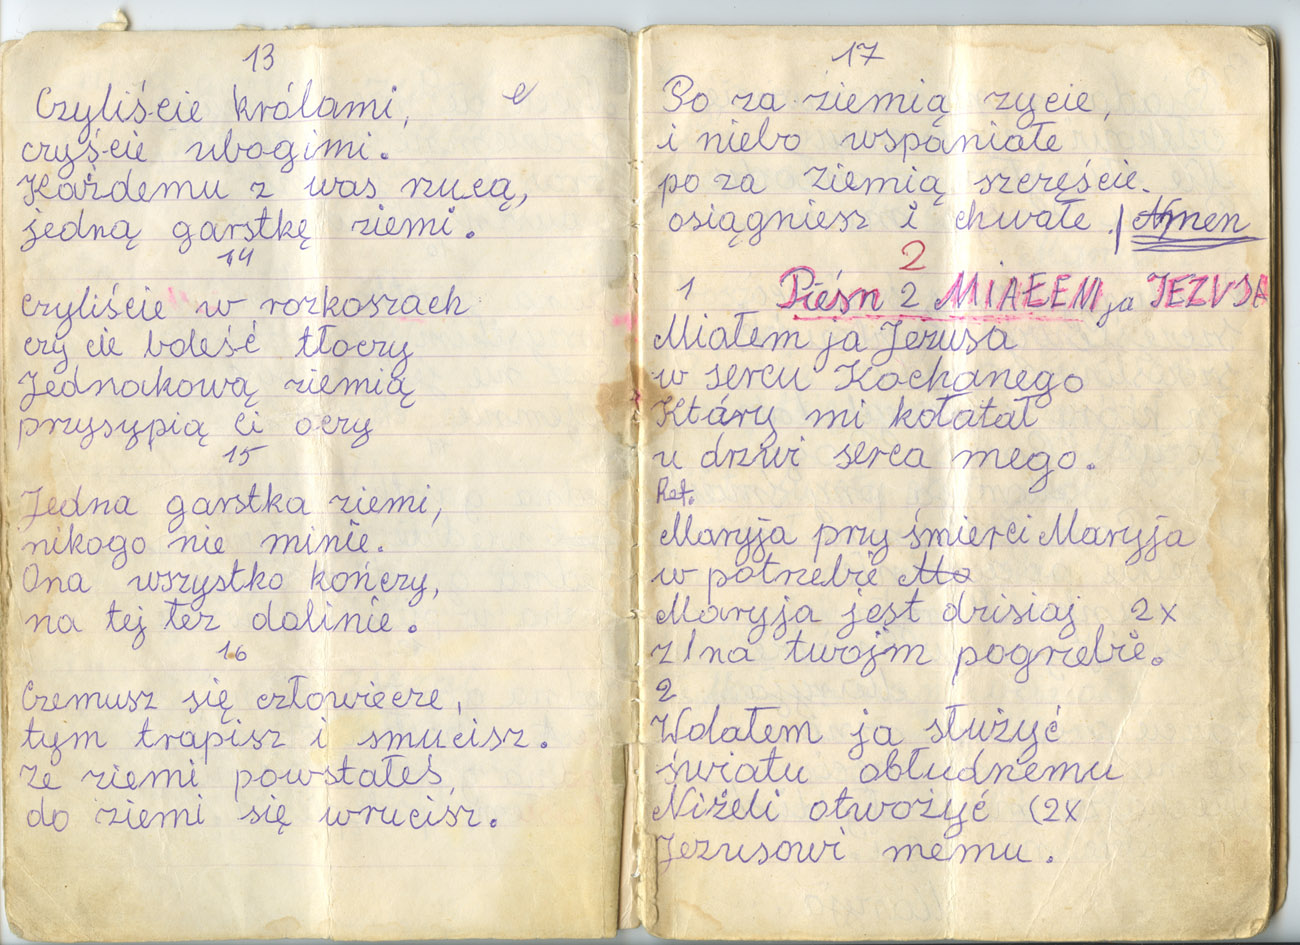 13
Czyliście królami,
czyście ubogimi.
Każdemu z was rzucą,
jedną garstkę ziemi.
14
czyliście w rozkoszach
czy cie boleść tłoczy
Jednakową ziemią
przysypią Ci oczy
15
Jedna garstka ziemi,
nikogo nie minie.
Ona wszystko kończy,
na tej też dolinie.
16
Czemusz się człowiecze,
tym trapisz i smucisz.
że ziemi powstałeś,
do ziemi się wrucisz.
17
Po za ziemią zycie,
i niebo wspaniałe
po za ziemią szczęście.
osiągniesz i chwałe. Amen
2
1 Pieśn 2 MIAŁEM ja JEZUSA
Miałem ja Jezusa
w sercu Kochanego
Który mi kołatał
u drzwi serca mego.
Ref.
Maryja przy śmierci Maryja
w potrzebie Ma
Maryja jest dzisiaj 2x
z/na twojm pogrzebie.
2
Wolałem ja służyć
światu obłudnemu
Niżeli otwożyć (2x
Jezusowi memu.